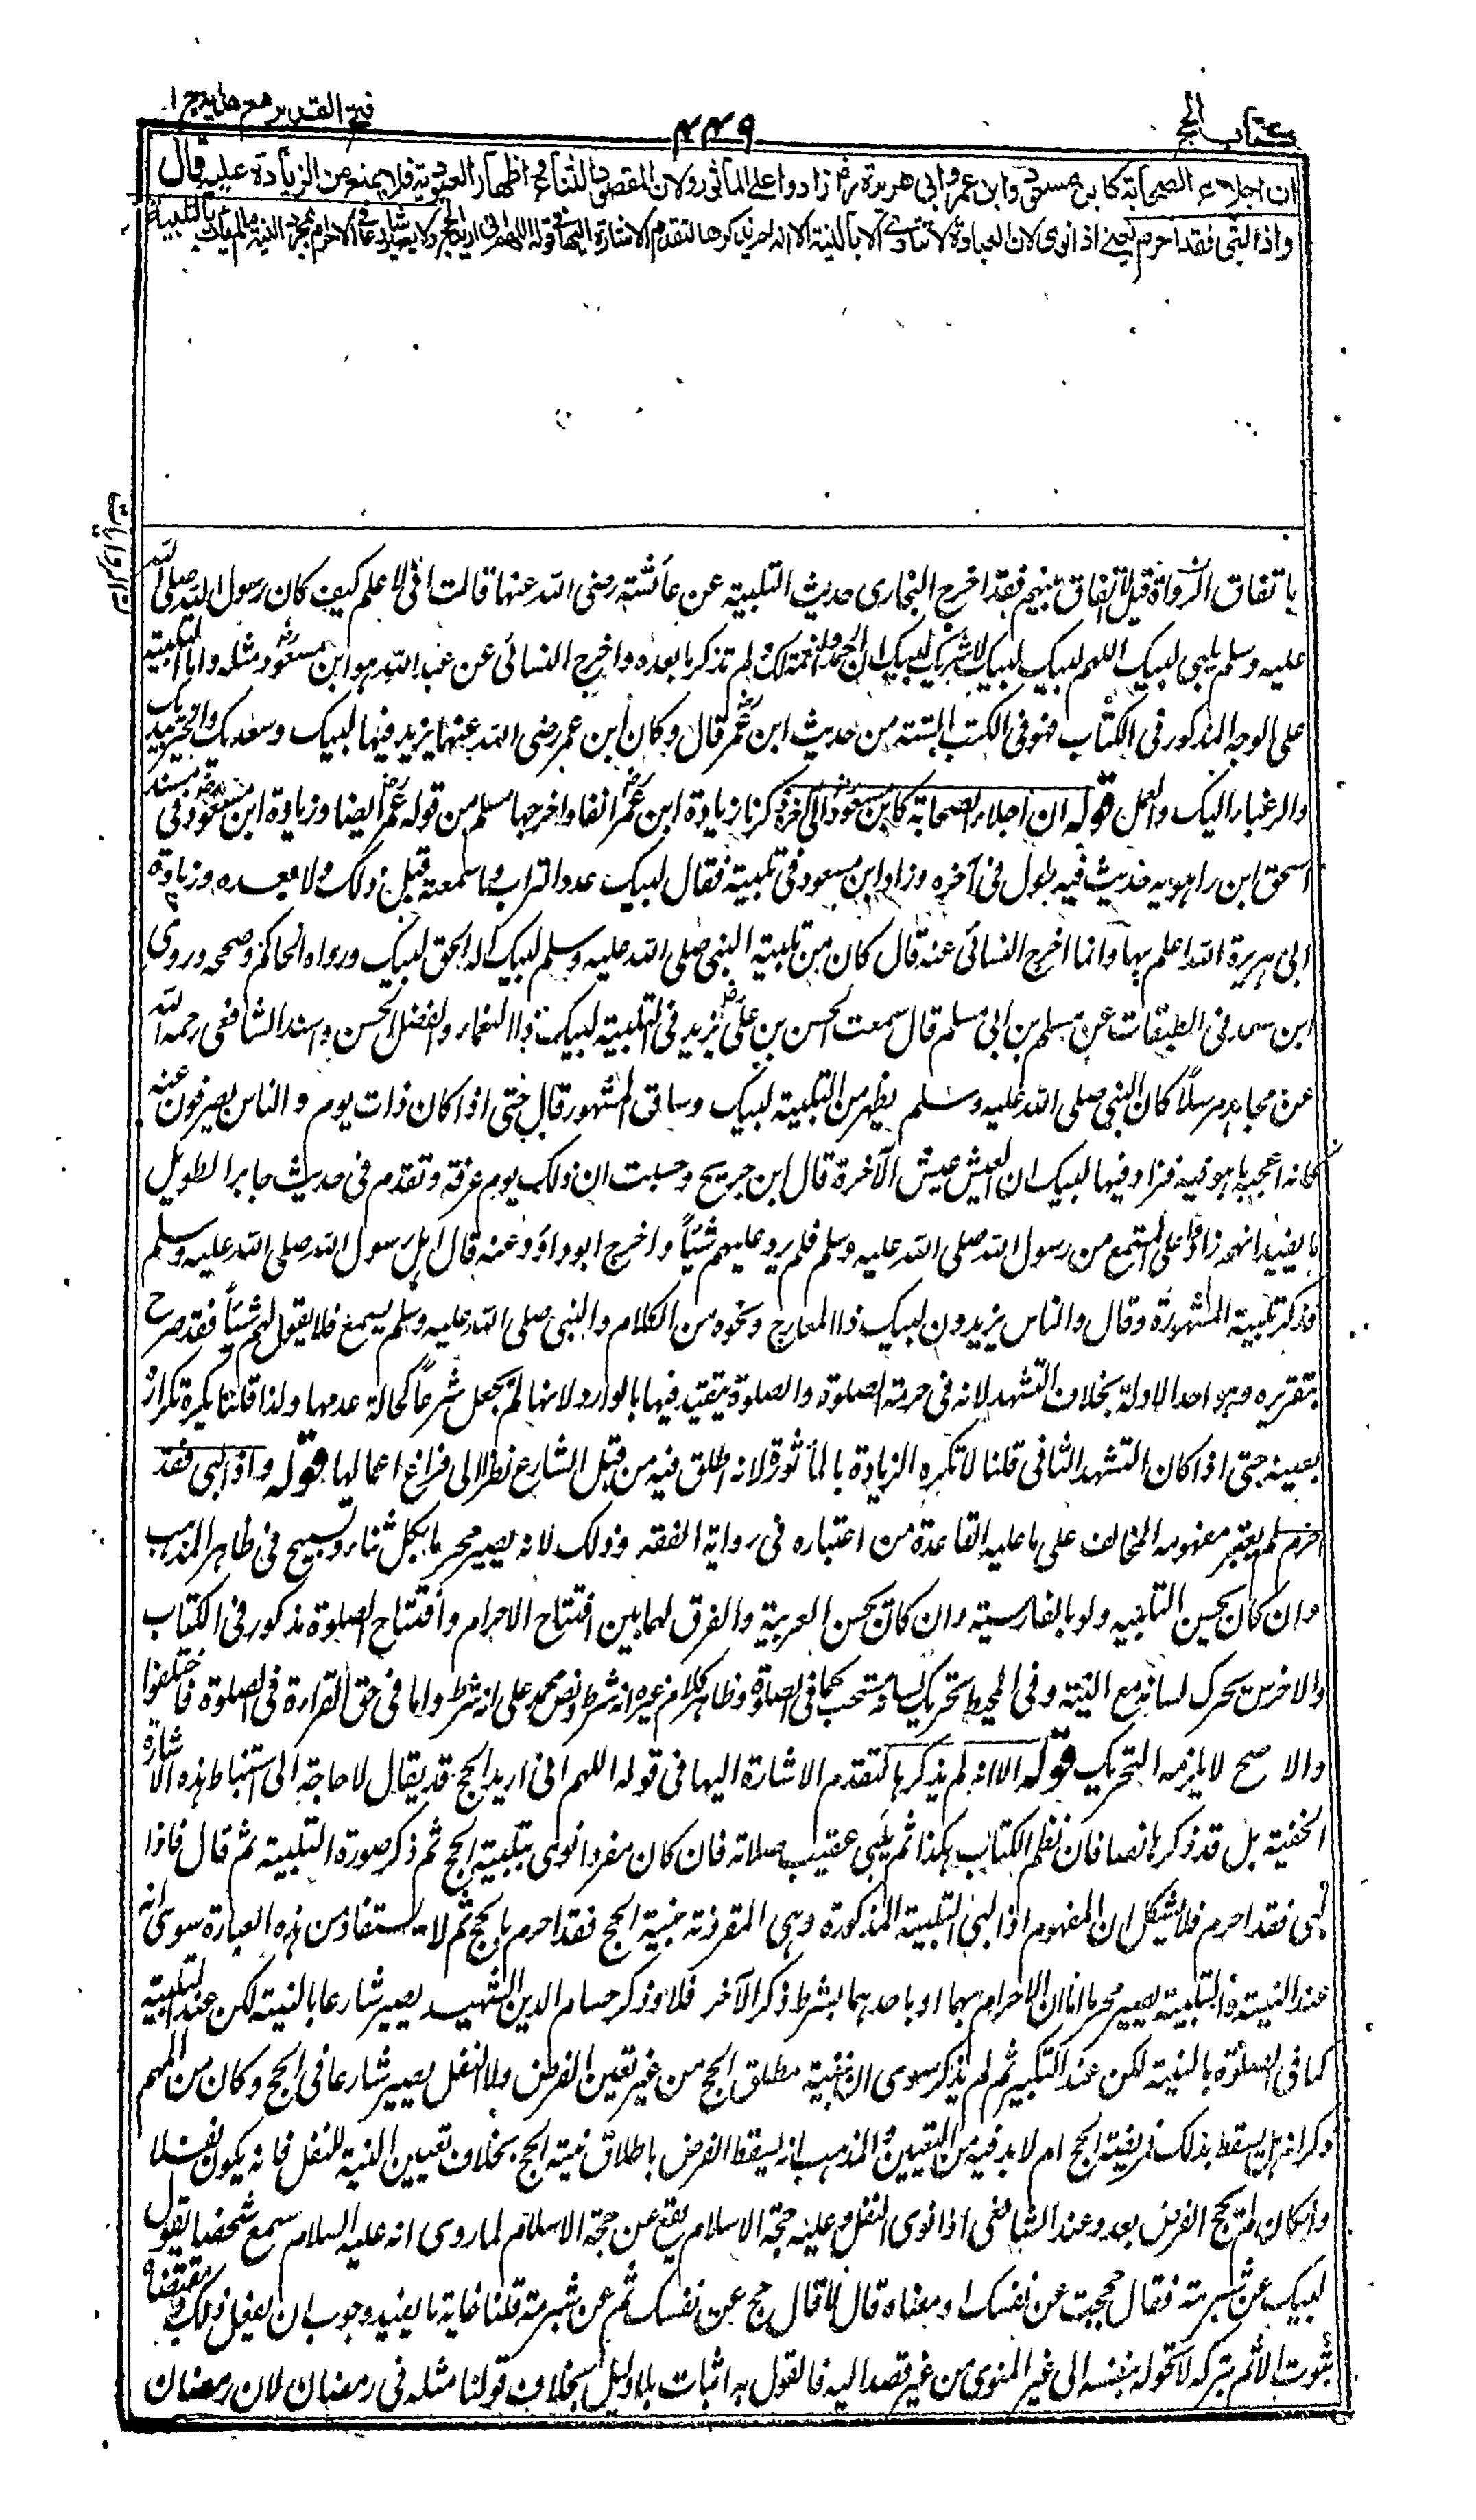 كتاب الحج
٤٤٩
فتح القدير مع هدايه ج ١
ان اجلاء الصحابة كابن مسعود وابن عمر وابي هريرة رض زادوا على الماثور ولان المقصود الثناء واظهار العبودية فلا يمنع من الزيادة عليه قال
واذا لبى فقد احرم يعني اذا نوى لان العبادة لا تتادى الا بالنية الا انه لم يذكرها لتقدم الاشارة اليها في قوله اللهم اني اريد الحج ولا يصير شارعا في الاحرام بمجرد النية ما لم يات بالتلبية
باتفاق الرواة قيل لا اتفاق بينهم فقد اخرج البخاري حديث التلبية عن عائشة رضي الله عنها قالت اني لا علم كيف كان رسول الله صلى الله
عليه وسلم يلبي لبيك اللهم لبيك لبيك لا شريك لك لبيك ان الحمد والنعمة لك ولم تذكر ما بعده واخرج النسائي عن عبد الله هو ابن مسعود رض مثله واما التلبية
على الوجه المذكور في الكتاب فهو في الكتب الستة من حديث ابن عمر رض قال وكان ابن عمر رضي الله عنهما يزيد فيها لبيك وسعديك والخير بيديك
والرغباء اليك والعمل قوله ان اجلاء الصحابة كابن مسعود رض الى اخره ذكرنا زيادة ابن عمر رض انفا واخرجها مسلم من قوله عمر رض ايضا وزيادة ابن مسعود رض في مسند
اسحق ابن راهويه في حديث فيه طول في آخره وزاد ابن مسعود في تلبية فقال لبيك عدد التراب وما سمعته قبل ذلك ولا بعده وزيادة
ابي هريرة الله اعلم بها وانما اخرج النسائي عنه قال كان من تلبية النبي صلى الله عليه وسلم لبيك اله الحق لبيك ورواه الحاكم وصححه وروى
ابن سعد في الطبقات عن مسلم بن ابي مسلم قال سمعت الحسن بن علي رض يزيد في التلبية لبيك ذا النعماء والفضل الحسن واسند الشافعي رحمه الله
عن مجاهد مرسلاً كان النبي صلى الله عليه وسلم يظهر من التلبية لبيك وساق المشهور قال حتى اذا كان ذات يوم والناس يصرفون عنه
كانه اعجبه ما هو فيه فزاد فيها لبيك ان العيش عيش الآخرة قال ابن جريج وحسبت ان ذلك يوم عرفة وتقدم في حديث جابر الطويل
ما يفيد انهم زادوا على المستمع من رسول الله صلى الله عليه وسلم فلم يرد عليهم شيئاً واخرج ابو داؤد عنه قال اهل رسول الله صلى الله عليه وسلم
فذكر تلبية المشهورة وقال والناس يزيدون لبيك ذا المعارج ونحوه من الكلام والنبي صلى الله عليه وسلم يسمع فلا يقول لهم شيئاً فقد صرح
بتقريره وهو احد الادلة بخلاف التشهد لانه في حرمة الصلوة والصلوة يتقيد فيها بالوارد ولانها لم تجعل شرعاً كحالة عدمها ولذا قلنا يكره تكراره
بعينه حتى اذا كان التشهد الثاني قلنا لا تكره الزيادة بالمأثور لانه اطلق فيه من قبل الشارع نظرا الى فراغ اعمالها قوله واذا لبى فقد
احرم لم يعتبر مفهومه المخالف على ما عليه القاعدة من اعتباره في رواية الفقه وذلك لانه يصير محرما بكل ثناء وتسبيح في ظاهر المذهب
وان كان يحسن التلبية ولو بالفارسية وان كان يحسن العربية والفرق لهما بين افتتاح الاحرام وافتتاح الصلوة مذكور في الكتاب
والاخرس يحرك لسانه مع النية وفي المحيط تحريك لسانه مستحب كما في الصلوة وظاهر كلام غيره انه شرط ونص محمد على انه شرط واما في حق القراءة في الصلوة فاختلفوا
والاصح لا يلزمه التحريك قوله الا انه لم يذكرها لتقدم الاشارة اليها في قوله اللهم اني اريد الحج قد يقال لا حاجة الى استنباط هذه الاشارة
الخفية بل قد ذكرها نصا فان نظم الكتاب هكذا ثم يلبي عقيب صلاته فان كان مفردا نوى بتلبية الحج ثم ذكر صورة التلبية ثم قال فاذا
لبى فقد احرم فلا يشكل ان المفهوم اذا لبى التلبية المذكورة وهي المقرونة بنية الحج فقد احرم بالحج ثم لا يستفاد من هذه العبارة سوى انه
عند النية والتلبية يصير محرما اما ان الاحرام بهما او باحدهما بشرط ذكر الآخر فلا وذكر حسام الدين الشهيد يصير شارعا بالنية لكن عند التلبية
كما في الصلوة بالنية لكن عند التكبير ثم لم يذكر سوى ان بنية مطلق الحج من غير تعين الفرض ولا النفل يصير شارعا في الحج وكان من المهم
ذكر انه هل يسقط بذلك فريضة الحج ام لا بد فيه من التعيين والمذهب انه يسقط الفرض باطلاق نية الحج بخلاف تعيين النية للنفل فانه يكون نفلا
وان كان لم يحج الفرض بعد وعند الشافعي اذا نوى النفل وعليه حجة الاسلام يقع عن حجة الاسلام لما روى انه عليه السلام سمع شخصا يقول
لبيك عن شبرمة فقال حججت عن نفسك او معناه قال لا قال حج عن نفسك ثم عن شبرمة قلنا غاية ما يفيد وجوب ان يفعل ذلك ومقتضاه
ثبوت الاثم بتركه لا تحوله بنفسه الى غير المنوي من غير قصد اليه فالقول به اثبات بلا دليل بخلاف قولنا مثله في رمضان لان رمضان